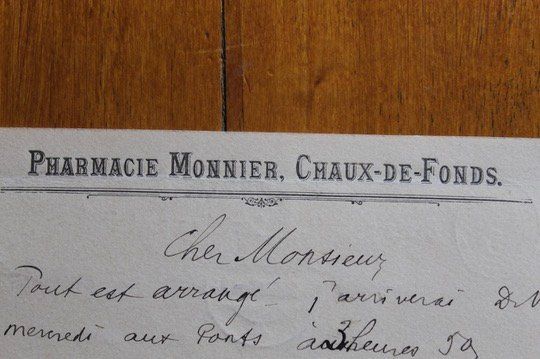 PHARMACIE MONNIER, CHAUX-DE-FONDS.
Cher Monsieur
Tout est arrangé j'arriverai
mercredi aux Ponts à 3 heures 50